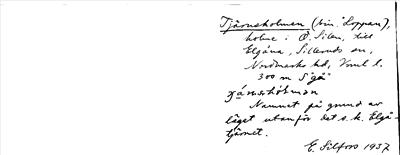 Tjärnsholmen (bin. Loppan),
holme i Ö. Silen, till
Elgåna, Silleruds sn,
Nordmarks hd, Vrml. l.
300 m S
Namnet på grund av
läget utanför det s.k. Elgå-
tjärnet.
E. Silfors 1937